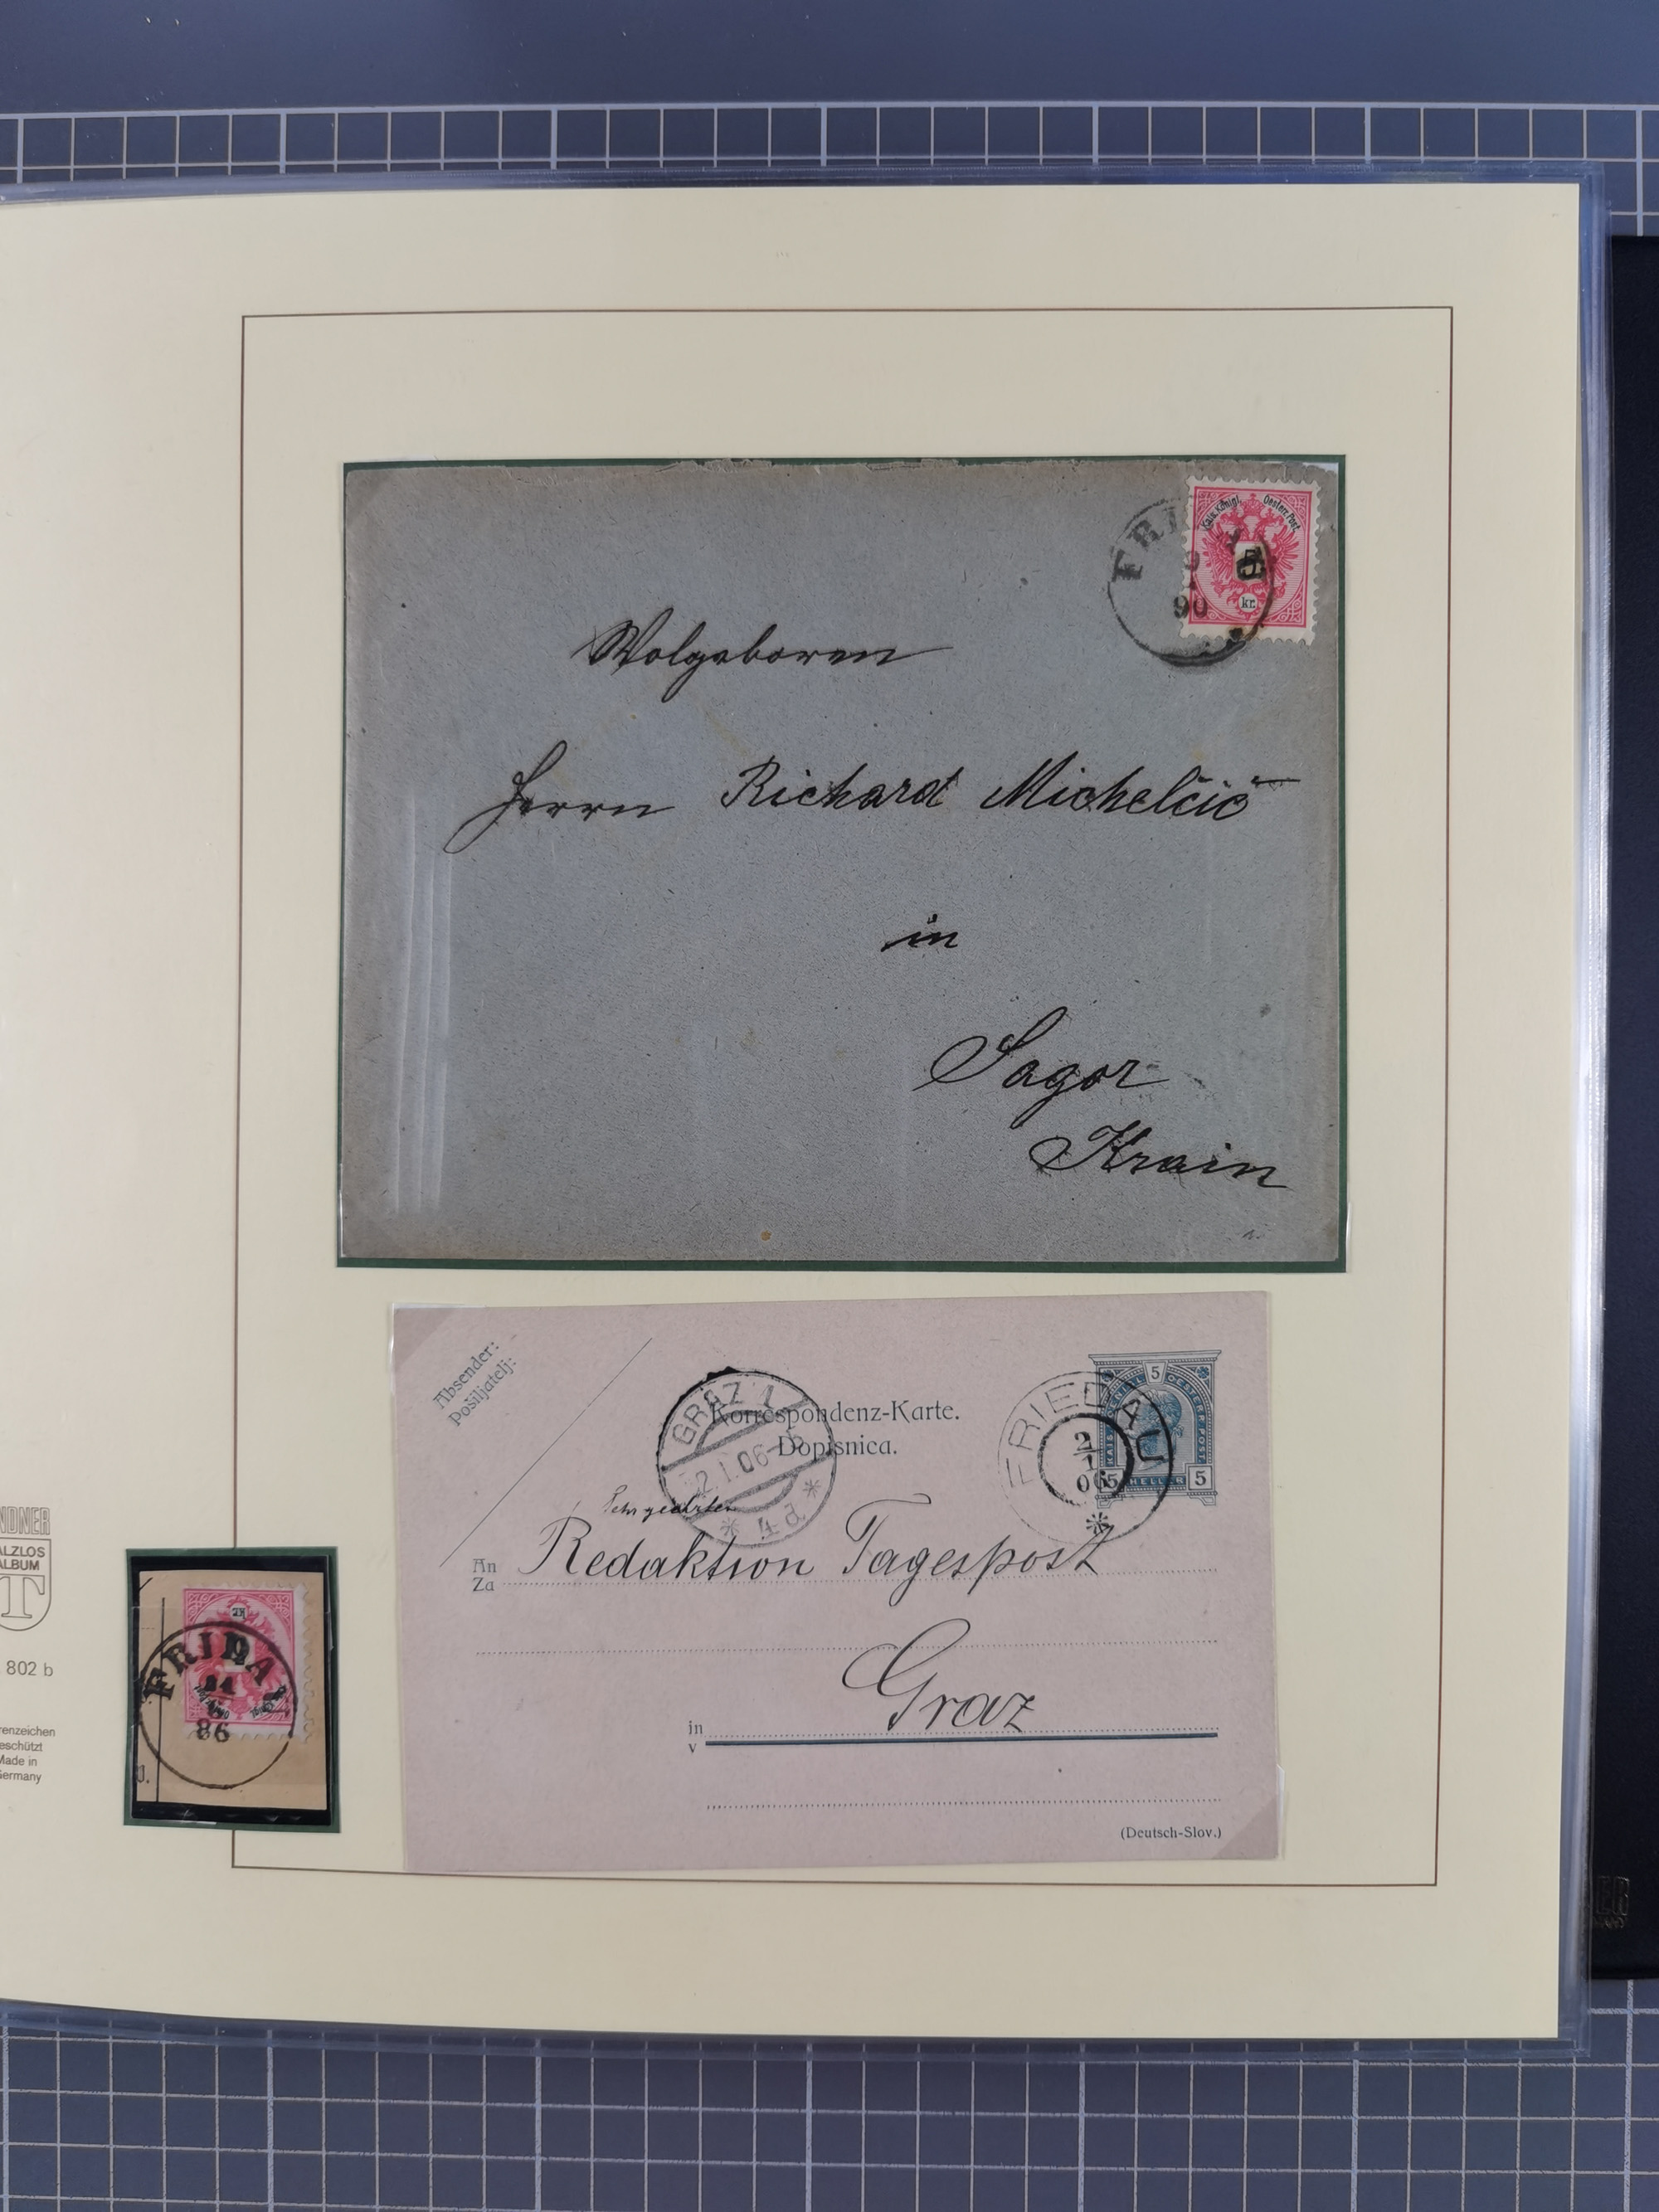 Kais. Königl. Oesterr. Post
5
kr.
FRI
9
90
Wolgeboren
Herrn Richard Michelčič
in
Sagor
Krain
Absender:
Pošiljatelj:
Korrespondenz-Karte.
Dopisnica.
GRAZ 1
2.1.06
* 4d *
FRIEDAU
2
1
06
*
5
KAIS. KÖNIGL. OESTERR. POST
5 HELLER 5
Sehr geehrten
An Redaktion Tagespost
Za
Graz
in
v
(Deutsch-Slov.)
NDNER
ALZLOS
ALBUM
T
802 b
renzeichen
eschützt
Made in
Germany
FRIDA
86